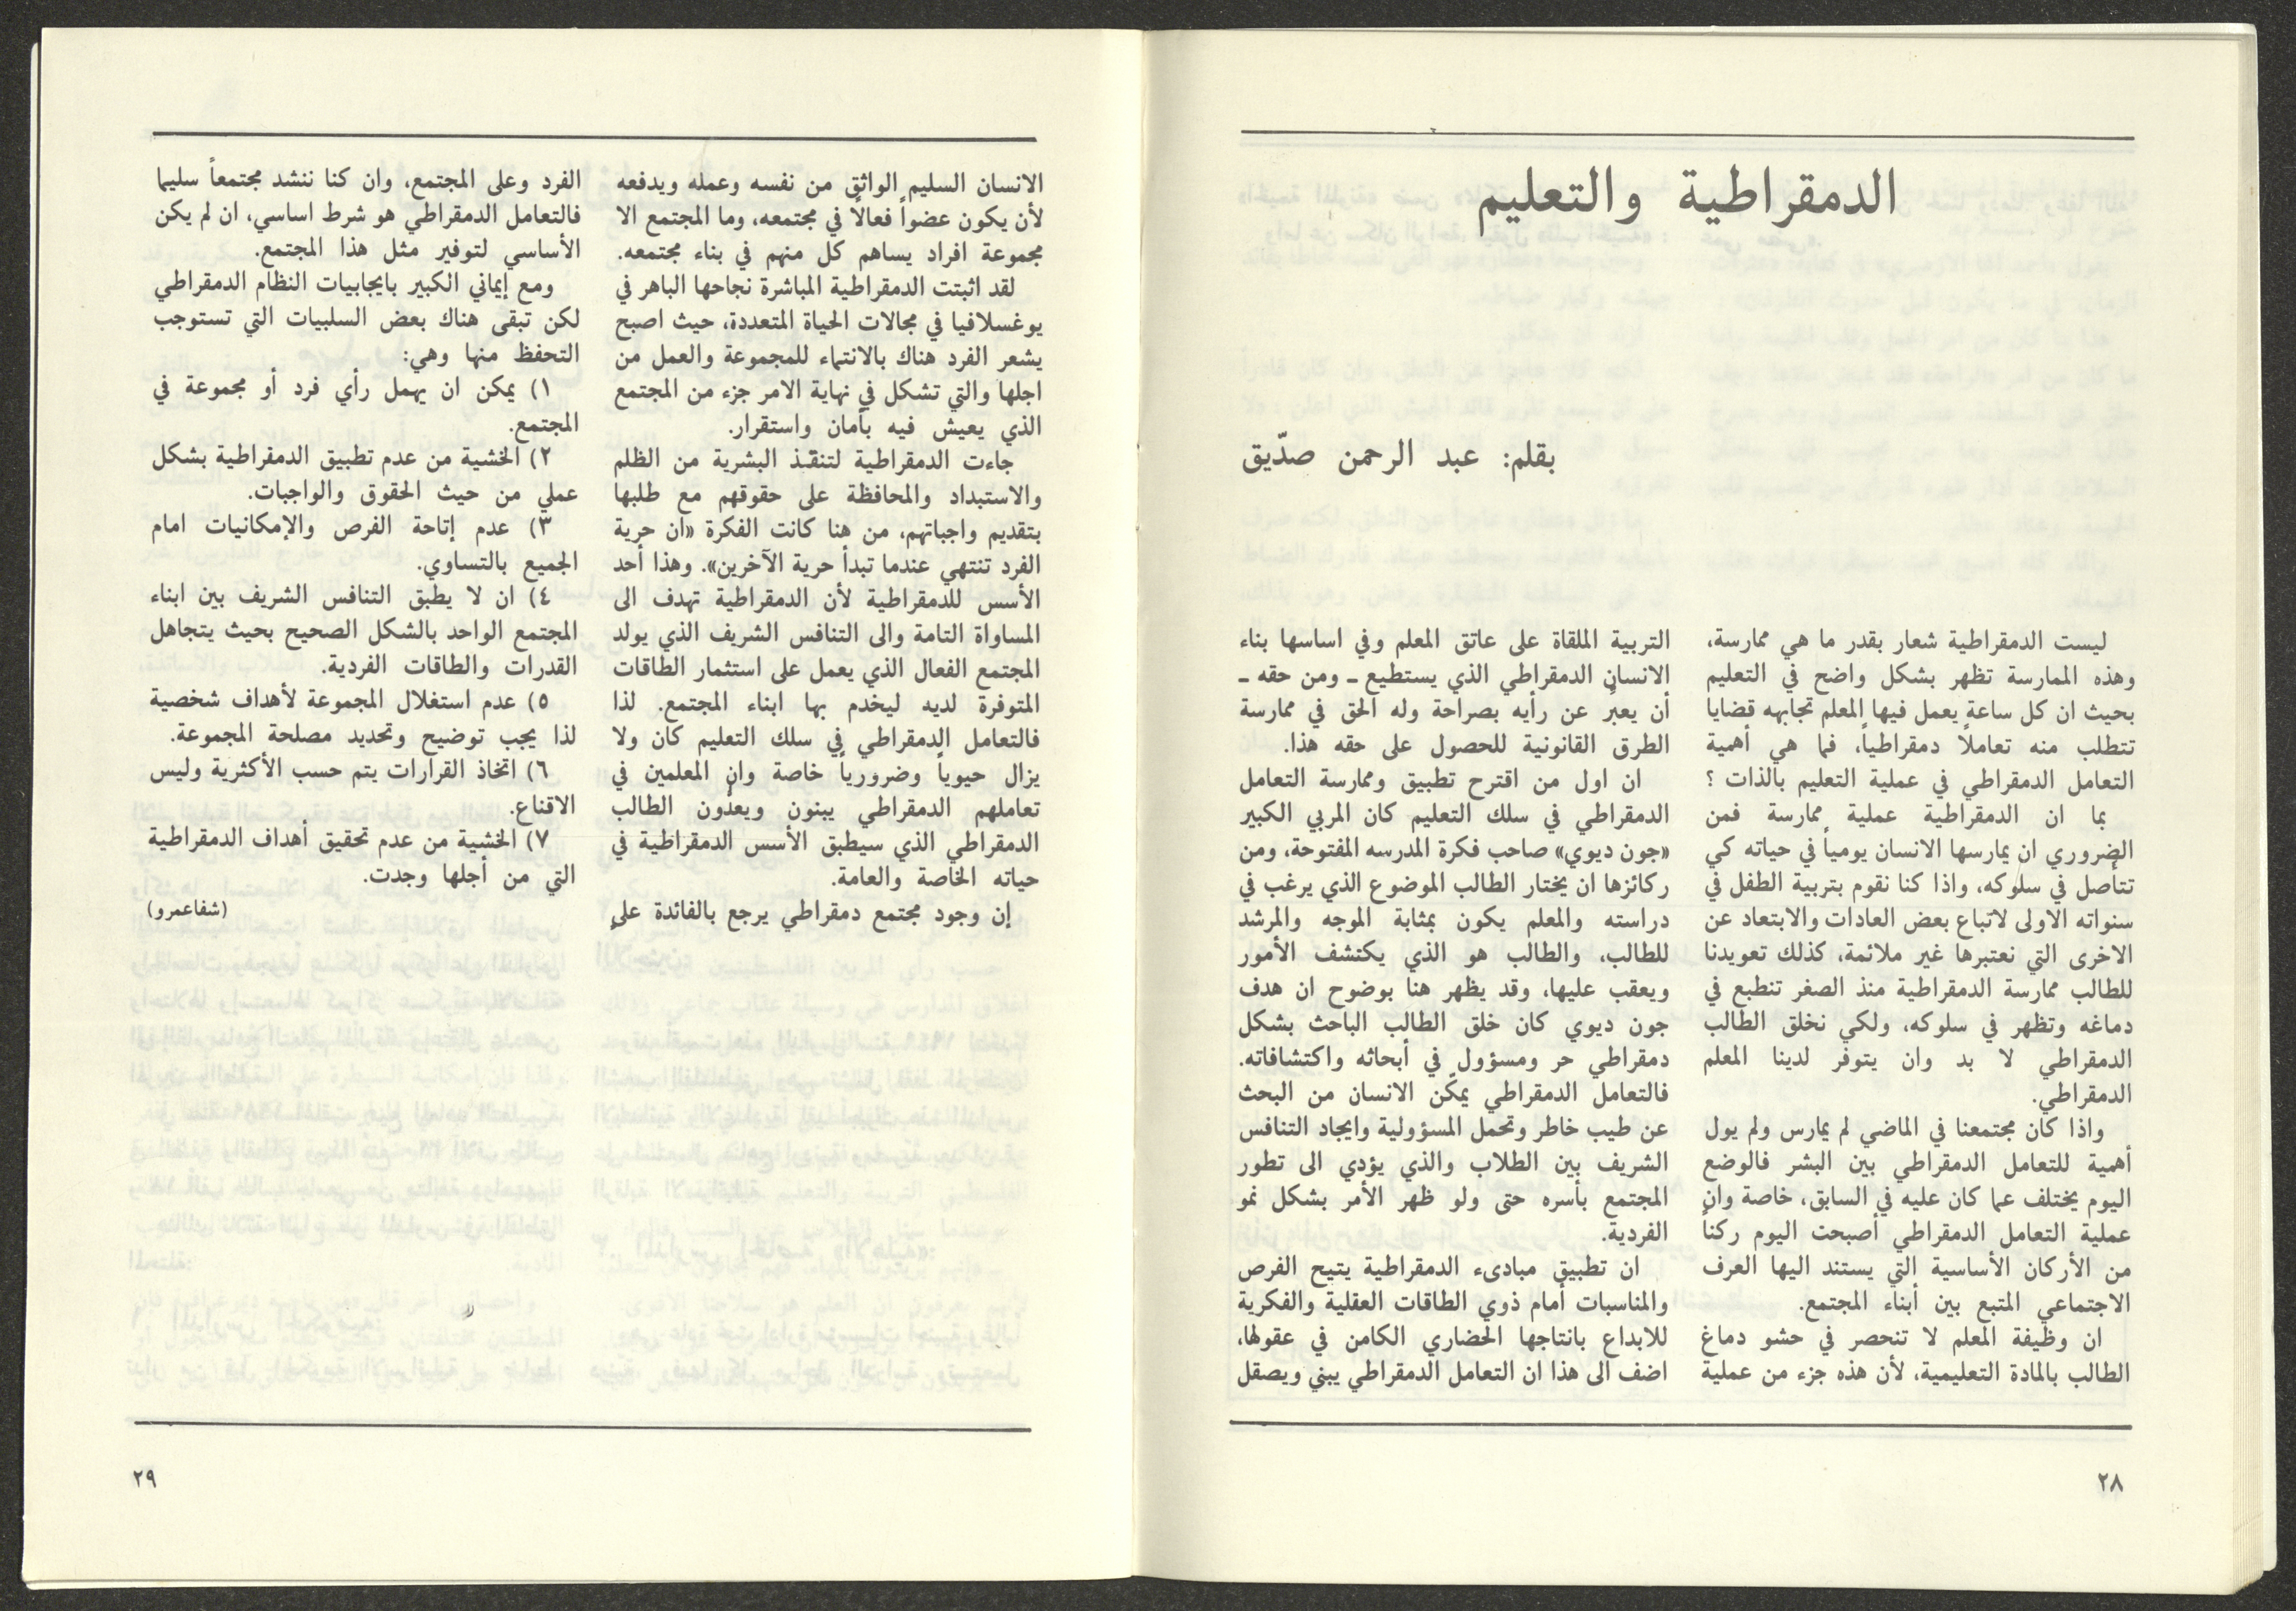 الدمقراطية والتعليم
بقلم: عبد الرحمن صدّيق
ليست الدمقراطية شعار بقدر ما هي ممارسة،
وهذه الممارسة تظهر بشكل واضح في التعليم
بحيث ان كل ساعة يعمل فيها المعلم تجابهه قضايا
تتطلب منه تعاملاً دمقراطياً، فما هي أهمية
التعامل الدمقراطي في عملية التعليم بالذات ؟
بما ان الدمقراطية عملية ممارسة فمن
الضروري ان يمارسها الانسان يومياً في حياته كي
تتأصل في سلوكه، واذا كنا نقوم بتربية الطفل في
سنواته الاولى لاتباع بعض العادات والابتعاد عن
الاخرى التي نعتبرها غير ملائمة، كذلك تعويدنا
للطالب ممارسة الدمقراطية منذ الصغر تنطبع في
دماغه وتظهر في سلوكه، ولكي نخلق الطالب
الدمقراطي لا بد وان يتوفر لدينا المعلم
الدمقراطي.
واذا كان مجتمعنا في الماضي لم يمارس ولم يول
أهمية للتعامل الدمقراطي بين البشر فالوضع
اليوم يختلف عما كان عليه في السابق، خاصة وان
عملية التعامل الدمقراطي أصبحت اليوم ركناً
من الأركان الأساسية التي يستند اليها العرف
الاجتماعي المتبع بين أبناء المجتمع.
ان وظيفة المعلم لا تنحصر في حشو دماغ
الطالب بالمادة التعليمية، لأن هذه جزء من عملية
التربية الملقاة على عاتق المعلم وفي اساسها بناء
الانسان الدمقراطي الذي يستطيع ـ ومن حقه ـ
أن يعبّر عن رأيه بصراحة وله الحق في ممارسة
الطرق القانونية للحصول على حقه هذا.
ان اول من اقترح تطبيق وممارسة التعامل
الدمقراطي في سلك التعليم كان المربي الكبير
«جون ديوي» صاحب فكرة المدرسه المفتوحة، ومن
ركائزها ان يختار الطالب الموضوع الذي يرغب في
دراسته والمعلم يكون بمثابة الموجه والمرشد
للطالب، والطالب هو الذي يكتشف الأمور
ويعقب عليها، وقد يظهر هنا بوضوح ان هدف
جون ديوي كان خلق الطالب الباحث بشكل
دمقراطي حر ومسؤول في أبحاثه واكتشافاته.
فالتعامل الدمقراطي يمكّن الانسان من البحث
عن طيب خاطر وتحمل المسؤولية وايجاد التنافس
الشريف بين الطلاب والذي يؤدي الى تطور
المجتمع بأسره حتى ولو ظهر الأمر بشكل نمو
الفردية.
ان تطبيق مبادىء الدمقراطية يتيح الفرص
والمناسبات أمام ذوي الطاقات العقلية والفكرية
للابداع بانتاجها الحضاري الكامن في عقولها،
اضف الى هذا ان التعامل الدمقراطي يبني ويصقل
٢٨
الانسان السليم الواثق من نفسه وعمله ويدفعه
لأن يكون عضواً فعالًا في مجتمعه، وما المجتمع الا
مجموعة افراد يساهم كل منهم في بناء مجتمعه.
لقد اثبتت الدمقراطية المباشرة نجاحها الباهر في
يوغسلافيا في مجالات الحياة المتعددة، حيث اصبح
يشعر الفرد هناك بالانتماء للمجموعة والعمل من
اجلها والتي تشكل في نهاية الامر جزء من المجتمع
الذي يعيش فيه بأمان واستقرار.
جاءت الدمقراطية لتنقذ البشرية من الظلم
والاستبداد والمحافظة على حقوقهم مع طلبها
بتقديم واجباتهم، من هنا كانت الفكرة «ان حرية
الفرد تنتهي عندما تبدأ حرية الآخرين». وهذا أحد
الأسس للدمقراطية لأن الدمقراطية تهدف الى
المساواة التامة والى التنافس الشريف الذي يولد
المجتمع الفعال الذي يعمل على استثمار الطاقات
المتوفرة لديه ليخدم بها ابناء المجتمع. لذا
فالتعامل الدمقراطي في سلك التعليم كان ولا
يزال حيوياً وضرورياً خاصة وان المعلمين في
تعاملهم الدمقراطي يبنون ويعدّون الطالب
الدمقراطي الذي سيطبق الأسس الدمقراطية في
حياته الخاصة والعامة.
إن وجود مجتمع دمقراطي يرجع بالفائدة على
الفرد وعلى المجتمع، وان كنا ننشد مجتمعاً سليما
فالتعامل الدمقراطي هو شرط اساسي، ان لم يكن
الأساسي لتوفير مثل هذا المجتمع.
ومع إيماني الكبير بايجابيات النظام الدمقراطي
لكن تبقى هناك بعض السلبيات التي تستوجب
التحفظ منها وهي:
١) يمكن ان يهمل رأي فرد أو مجموعة في
المجتمع.
٢) الخشية من عدم تطبيق الدمقراطية بشكل
عملي من حيث الحقوق والواجبات.
٣) عدم إتاحة الفرص والإمكانيات امام
الجميع بالتساوي.
٤) ان لا يطبق التنافس الشريف بين ابناء
المجتمع الواحد بالشكل الصحيح بحيث يتجاهل
القدرات والطاقات الفردية.
٥) عدم استغلال المجموعة لأهداف شخصية
لذا يجب توضيح وتحديد مصلحة المجموعة.
٦) اتخاذ القرارات يتم حسب الأكثرية وليس
الاقناع.
٧) الخشية من عدم تحقيق أهداف الدمقراطية
التي من أجلها وجدت.
(شفاعمرو)
٢٩